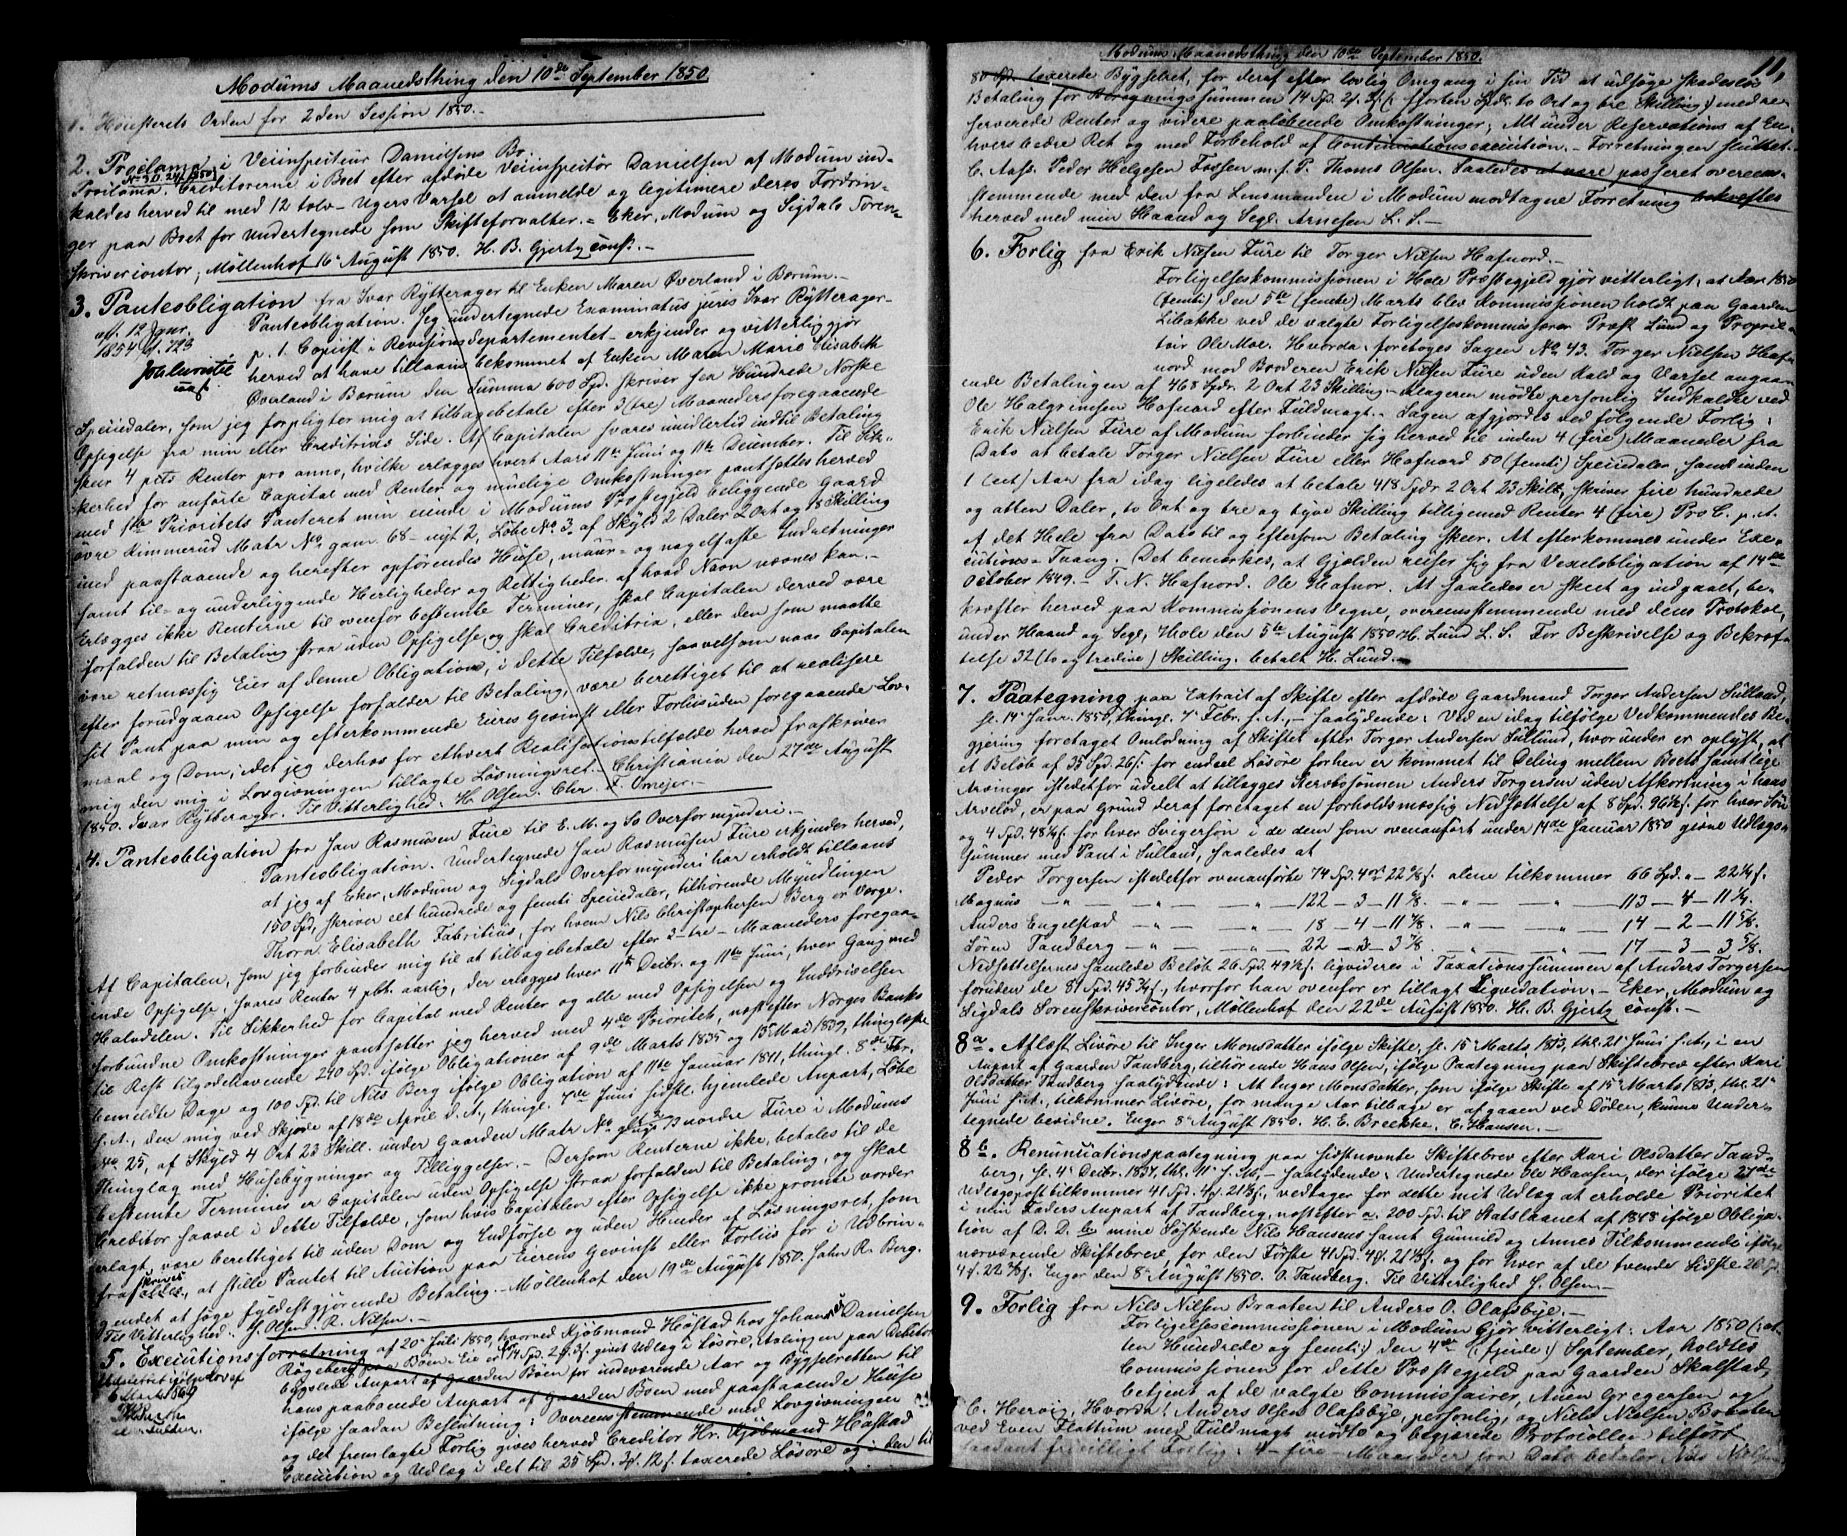 Modums Maanedsthing den 10de September 1850.
1. Høiesterets Orden for 2den Session 1850.-
2. Proclama i Veiinspecteur Danielsens Bo.
Proclama. Creditorerne i Boet efter afdøde Veiinspectør Danielsen af Modum ind-
kaldes herved til med 12 tolv- Ugers Varsel at anmelde og legitimere deres Fordrin-
ger paa Boet for Undertegnede som Skifteforvalter.- Eker, Modum og Sigdals Soren-
skrivercontor, Møllenhof 16 August 1850. H. B. Gjertz const.-
3. Panteobligation fra Ivar Rytterager til Enken Maren Øverland i Bærum.-
Panteobligation. Jeg undertegnede Examinatus juris Ivar Rytterager-
p. t. Copiist i Revisionsdepartementet- erkjender og vitterliggjør
herved at have tillaans bekommet af Enken Maren Marie Elisabeth
Øverland i Bærum den Summa 600 Spd. skriver sex Hundrede Norske
Speciedaler, som jeg forpligter mig at tilbagebetale efter 3 (tre) Maaneders foregaaende
Opsigelse fra min eller Creditrix's Side. Af Capitalen svares imidlertid indtil Betaling
skeer 4 pCts Renter pro anno, hvilke erlægges hvert Aars 11te Juni og 11te December. Til Sik-
kerhed for anførte Capital med Renter og mulige Omkostninger pantsættes herved
med 1ste Prioritets Panteret min eiende i Modums Præstegjeld beliggende Gaard
øvre Kimmerud Matr No. gam. 68- nyt 2, Løbe No. 3 af Skyld 2 Daler 2 Ort og 18 Skilling
med paastaaende og herefter opførendes Huse, muur- og nagelfaste Indretninger
samt til- og underliggende Herligheder og Rettigheder af hvad Navn nævnes kan.-
Erlægges ikke Renterne til ovenfor bestemte Terminer, skal Capitalen derved være
forfalden til Betaling strax uden Opsigelse, og skal Creditrix, eller den som maatte
være retmæssig Eier af denne Obligation, i dette Tilfælde, saavelsom naar Capitalen
efter forudgaaen Opsigelse forfalder til Betaling, være berettiget til at realisere
sit Pant paa min og efterkommende Eieres Gevinst eller Forliis uden foregaaende Lov-
maal og Dom, idet jeg derhos for ethvert Realisationstilfælde herved fraskriver
mig den mig i Lovgivningen tillagte Løsningsret.- Christiania den 27de August
1850. Ivar Rytterager. Til Vitterlighed: H. Olsen. Chr. F. Omejer.-
4. Panteobligation fra Jan Rasmussen Fure til E. M. og S. Overformynderi.-
Panteobligation. Undertegnede Jan Rasmussen Fure erkjender herved,
at jeg af Eker, Modum og Sigdals Overformynderi har erholdt tillaans
150 Spd, skriver eet hundrede og femti Speciedaler, tilhørende Myndlingen
Thora Elisabeth Fabritius, for hvem Nils Christophersen Berg er Værge.
Af Capitalen, som jeg forbinder mig til at tilbagebetale efter 3- tre- Maaneders foregaa-
ende Opsigelse, svares Renter 4 pCt. aarlig, der erlægges hver 11te Decbr. og 11te Juni, hver Gang med
Halvdelen. Til Sikkerhed for Capital med Renter og alle med Opsigelsen og Inddrivelsen
forbundne Omkostninger pantsætter jeg herved med 4de Prioritet, næst efter Norges Banks
til Rest tilgodehavende 240 Spd. ifølge Obligationer af 9de Marts 1835 og 15 Mai 1839, thinglæste
bemeldte Dage og 100 Spd. til Nils Berg ifølge Obligation af 11te Januar 1841, thingl. 8de Febr.
s. A., den mig ved Skjøde af 18de April d. A., thingl. 7de Juni sidstl. hjemlede Anpart, Løbe
No. 25, af Skyld 4 Ort 23 Skill. under Gaarden Matr No. 73 nordre Fure i Modums
Thinglag med Husebygninger og Tilliggelser.- Dersom Renterne ikke betales til de
bestemte Terminer er Capitalen uden Opsigelse strax forfalden til Betaling, og skal
Creditor saavel i dette Tilfælde, som hvis Capitalen efter Opsigelse ikke promte vorder
erlagt, være berettiget til uden Dom og Indførsel og uden Hinder af Løsningsret, som
fraskrives, at stille Pantet til Auction paa Eierens Gevinst eller Forliis for i Udbrin-
gendet at søge fyldestgjørende Betaling.- Møllenhof den 19de August 1850. John R. Berg.
Til Vitterlighed: J. Olsen. R. Nilsen.-
5. Executionsforretning af 20de Juli 1850, hvorved Kjøbmand Høstad hos Johannes Danielsen
Bøgeberg paa Boen-Eie er 14 Spd. 2 [...] givet Udlæg i Løsøre,
hans paaboende Anpart af Gaarden Boen for indeværende Aar og Bygselretten til
ifølge saadan Beslutning: Overensstemmende med Lovgivningen
og det fremlagte Forlig gives herved Creditor Hr. Kjøbmand Høstad
Execution og Udlæg i det til 25 Spd. 3 [...] 12 s. taxerede Løsøre og i den til
Modums Maanedsthing den 10de September 1850.
11,
80 Spd. taxerede Bygselret, for deraf efter lovlig Omgang i sin Tid at udsøge skadesløs
Betaling for Beregningssummen 14 Spd. 2 [...] (: fjorten Spdlr. to Ort og tre Skilling:) med re-
serverede Renter og videre paaløbende Omkostninger; Alt under Reservations af En-
hvers bedre Ret og med Forbehold af Continuationsexecution.- Forretningen sluttet.
C. Aass. Peder Helgesen Fossen m. f. P. Thoms Olsen. Saaledes at være passeret overeen-
stemmende med den fra Lensmanden i Modum modtagne Forretning bekræftes
herved med min Haand og Segl. Arnesen L. S.-
6. Forlig fra Erik Nilsen Fure til Torger Nilsen Hafnord.-
Forligelseskommissionen i Hole Præstegjeld gjør vitterligt, at Aar 1850
(femti) den 5te (femte) Marts blev Kommissionen holdt paa Gaarden
Libakke ved de valgte Forligelseskommissærer Præst Lund og Proprie-
tair Ole Moe. Hvorda: foretoges Sagen No. 43. Torger Nielsen Haf-
nord mod Broderen Erik Nielsen Fure uden Kald og Varsel angaa-
ende Betalingen af 468 Spdr. 2 Ort 23 Skilling.- Klageren mødte personlig Indkaldte ved
Ole Halgrimsen Hafnord efter Fuldmagt.- Sagen afgjordtes ved følgende Forlig:
Erik Nielsen Fure af Modum forbinder sig herved til inden 4 (fire) Maaneder fra
Dato at betale Torger Nielsen Fure eller Hafnord 50 (femti) Speciedaler, samt inden
1 (eet) Aar fra idag ligeledes at betale 418 Spdr 2 Ort 23 Skill, skriver fire hundrede
og atten Daler, to Ort og tre og tyve Skilling tilligemed Renter 4 (fire) Pro C. p. A.
af det Hele fra Dato til og eftersom Betaling skeer. At efterkommes under Exe-
cutions-Tvang. Det bemærkes, at Gjælden reiser sig fra Vexelobligation af 14de
October 1849.- T. N. Hafnord. Ole Hafnor. At saaledes er skeet og indgaaet, be-
kræfter herved paa Kommissionens Vegne, overeensstemmende med dens Protokol,
under Haand og Segl, Hole den 5te August 1850. H. Lund L. S. For Beskrivelse og Bekræf-
telse 32 (to og tredive) Skilling. betalt H. Lund.-
7. Paategning paa Extrait af Skifte efter afdøde Gaardmand Torger Andersen Sulland,
sl. 14 Janr. 1850, thingl. 7 Febr. s. A.,- saalydende: Ved en idag tilfølge Vedkommendes Be-
gjering foretaget Omlodning af Skiftet efter Torger Andersen Sulland, hvorunder er oplyst, at
et Beløb af 35 Spd. 26 s. for endeel Løsøre forhen er kommet til Deling mellem Boets samtlige
Arvinger istedetfor udeelt at tillægges Stervbosønnen Anders Torgersen uden Afkortning i hans
Arvelod, er paa Grund deraf foretaget en forholdsmæssig Nedsættelse af 8 Spd. 96 [...] for hver Søn
og 4 Spd. 48 [...] for hver Svigersøn i de dem som ovenanført under 14de Januar 1850 givne Udlægs-
Summer med Pant i Sulland, saaledes at
Peder Torgersen istedetfor ovenanførte 74 Spd. 4 ort 22 7/8 s. alene tilkommer 66 Spd. „- 22 [...] s.
Magnus -„- -„- „ - 122 - 3 - 11 [...] -„- „ - 113 - 4 - 11 [...]
Anders Engelstad -„- -„- „ - 18 - 4 - 11 [...] -„- „ - 14 - 2 - 11 5/8.
Søren Tandberg -„- -„- „ - 22 - 3 - 3 7/8. „ „ - 17 - 3 - 3 5/8.
Nedsættelsernes samlede Beløb 26 Spd. 49 [...] s. liqvideres i Taxationssummen af Anders Torgersen
foruden de 81 Spd. 45 3/4 s., hvorfor han ovenfor er tillagt Liqvidation.- Eker, Modum og
Sigdals Sorenskrivercontor, Møllenhof den 22de August 1850. H. B. Gjertz const.-
8a. Aflæst Livøre til Inger Monsdatter ifølge Skifte, sl. 15 Marts 1813, thl. 21 Juni s. A., i en
Anpart af Gaarden Tandberg, tilhørende Hans Olsen, ifølge Paategning paa Skiftebrev efter Kari
Olsdatter Tandberg saalydende: At Inger Monsdatter, som ifølge Skifte af 15 Marts 1813, thl. 21
Juni s. A., tilkommer Livøre, for mange Aar tilbage er afgaaen ved Døden, kunne Under-
tegnede bevidne. Enger 8 August 1850. H. E. Breekke. C. Hansen.-
8b. Renunciationspaategning paa sidstnævnte Skiftebrev efter Kari Olsdatter Tand-
berg, sl. 4 Decbr. 1837, thl. 11 s. M.,- saalydende: Undertegnede Ole Hansen, der ifølge 27de
Udlægspost tilkommer 41 Spd. 4 [...] 21 [...] s., vedtager for dette mit Udlæg at erholde Prioritet
i min Faders Anpart af Tandberg, næstefter a. 200 Spd. til Statslaanet af 1848 ifølge Obliga-
tion af D. D. b. mine Søskende Nils Hansens samt Gunnild og Annes Tilkommende ifølge
nærværende Skiftebrev, for den Første 41 Spd. 4 [...] 21 [...] s. og for hver af de tvende Sidste 20 Spd.
4 [...] 22 [...] s. Enger den 8 August 1850. O. Tandberg. Til Vitterlighed J. Olsen.-
9. Forlig fra Nils Nilsen Braaten til Anders O. Olafsbye.-
Forligelsescommissionen i Modum Gjør vitterligt: Aar 1850 (: at-
ten Hundrede og femti:) den 4de (: fjerde:) September, holdtes
Commissionen for dette Præstegjeld paa Gaarden Skalstad,
betjent af de valgte Commissairer, Auen Gregersen og
C. Hervig, Hvorda! Anders Olsen Olafsbye, personlig, og Niels Nielsen Braaten
ved Even Flattum med Fuldmagt mødte og begjærede Protocollen tilført
saadant frivilligt Forlig: 4- fire- Maaneder fra Dato betaler Nils Nielsen